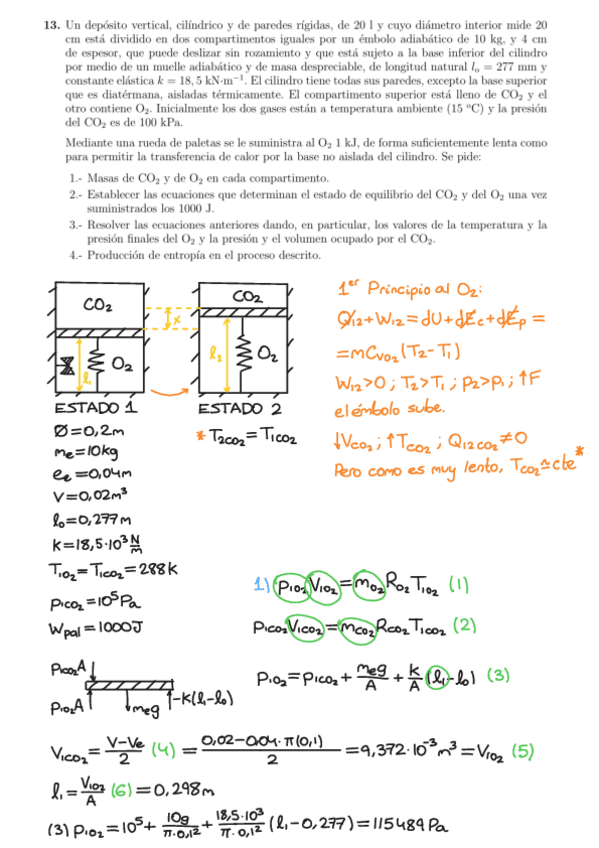 13. Un depósito vertical, cilíndrico y de paredes rígidas, de 20 l y cuyo diámetro interior mide 20
cm está dividido en dos compartimentos iguales por un émbolo adiabático de 10 kg, y 4 cm
de espesor, que puede deslizar sin rozamiento y que está sujeto a la base inferior del cilindro
por medio de un muelle adiabático y de masa despreciable, de longitud natural lₒ = 277 mm y
constante elástica k = 18,5 kN·m⁻¹. El cilindro tiene todas sus paredes, excepto la base superior
que es diatérmana, aisladas térmicamente. El compartimento superior está lleno de CO₂ y el
otro contiene O₂. Inicialmente los dos gases están a temperatura ambiente (15 ºC) y la presión
del CO₂ es de 100 kPa.
Mediante una rueda de paletas se le suministra al O₂ 1 kJ, de forma suficientemente lenta como
para permitir la transferencia de calor por la base no aislada del cilindro. Se pide:
1.- Masas de CO₂ y de O₂ en cada compartimento.
2.- Establecer las ecuaciones que determinan el estado de equilibrio del CO₂ y del O₂ una vez
suministrados los 1000 J.
3.- Resolver las ecuaciones anteriores dando, en particular, los valores de la temperatura y la
presión finales del O₂ y la presión y el volumen ocupado por el CO₂.
4.- Producción de entropía en el proceso descrito.
CO₂
x
O₂
l₁
ESTADO 1
CO₂
l₂
O₂
ESTADO 2
* T₂CO₂=T₁CO₂
1er Principio al O₂:
Q₁₂+W₁₂=dU+dEc+dEp=
=mCvO₂(T₂-T₁)
W₁₂>0; T₂>T₁; p₂>p₁; ↑F
el émbolo sube.
↓VCO₂; ↑TCO₂; Q₁₂CO₂≠0
Pero como es muy lento, TCO₂≃cte*
Ø=0,2m
me=10kg
ee=0,04m
V=0,02m³
l₀=0,277m
K=18,5·10³ N/m
T₁O₂=T₁CO₂=288K
p₁CO₂=10⁵Pa
Wpal=1000J
1) p₁O₂V₁O₂=mO₂RO₂T₁O₂ (1)
p₁CO₂V₁CO₂=mCO₂RCO₂T₁CO₂ (2)
p₁O₂=p₁CO₂+meg/A+K/A(l₁-l₀) (3)
p₁CO₂A
p₁O₂A
meg
-K(l₁-l₀)
V₁CO₂=(V-Ve)/2 (4) =(0,02-0,04·π(0,1))/2=9,372·10⁻³m³=V₁O₂ (5)
l₁=V₁O₂/A (6)=0,298m
(3) p₁O₂=10⁵+10g/(π·0,1²)+18,5·10³/(π·0,1²)(l₁-0,277)=115489Pa